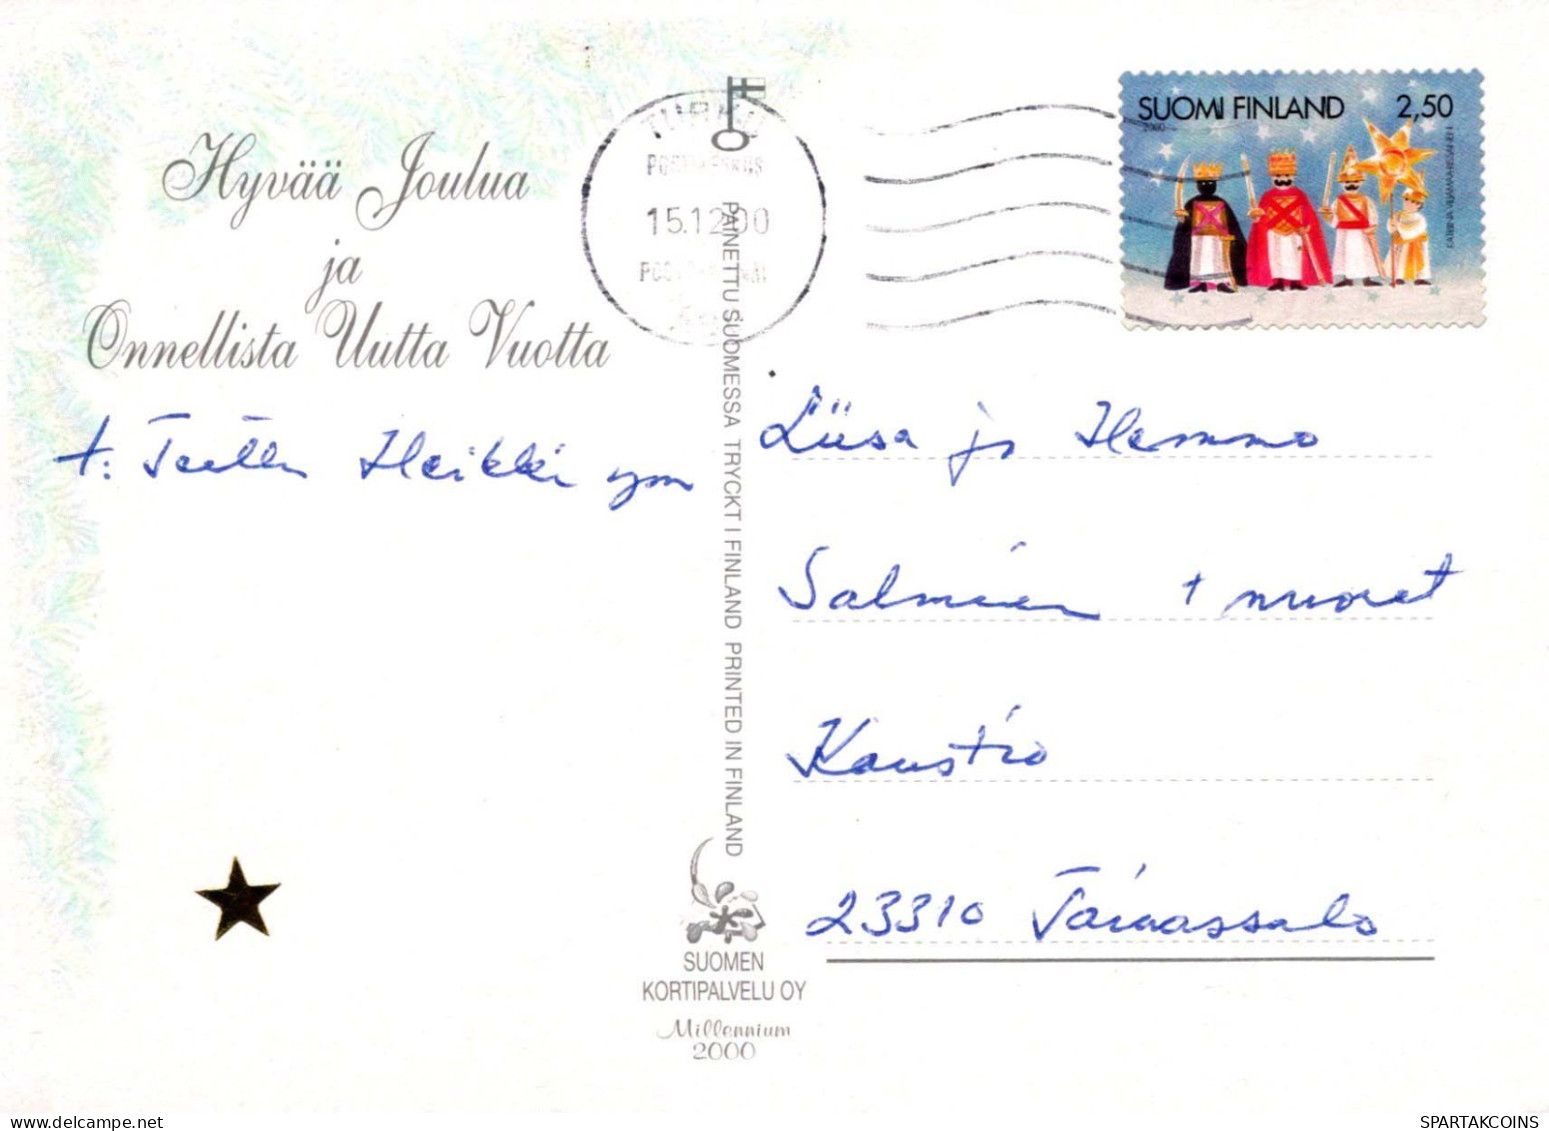 Hyvää Joulua
ja
Onnellista Uutta Vuotta
t: Terttu Heikki ym
TURKU
15.12.00
SUOMI FINLAND 2,50
2000
PAINETTU SUOMESSA TRYCKT I FINLAND PRINTED IN FINLAND
Liisa ja Hemmo
Salminen + nuoret
Kaustio
23310 Taivassalo
SUOMEN
KORTIPALVELU OY
Millennium
2000
SPARTAKCOINS